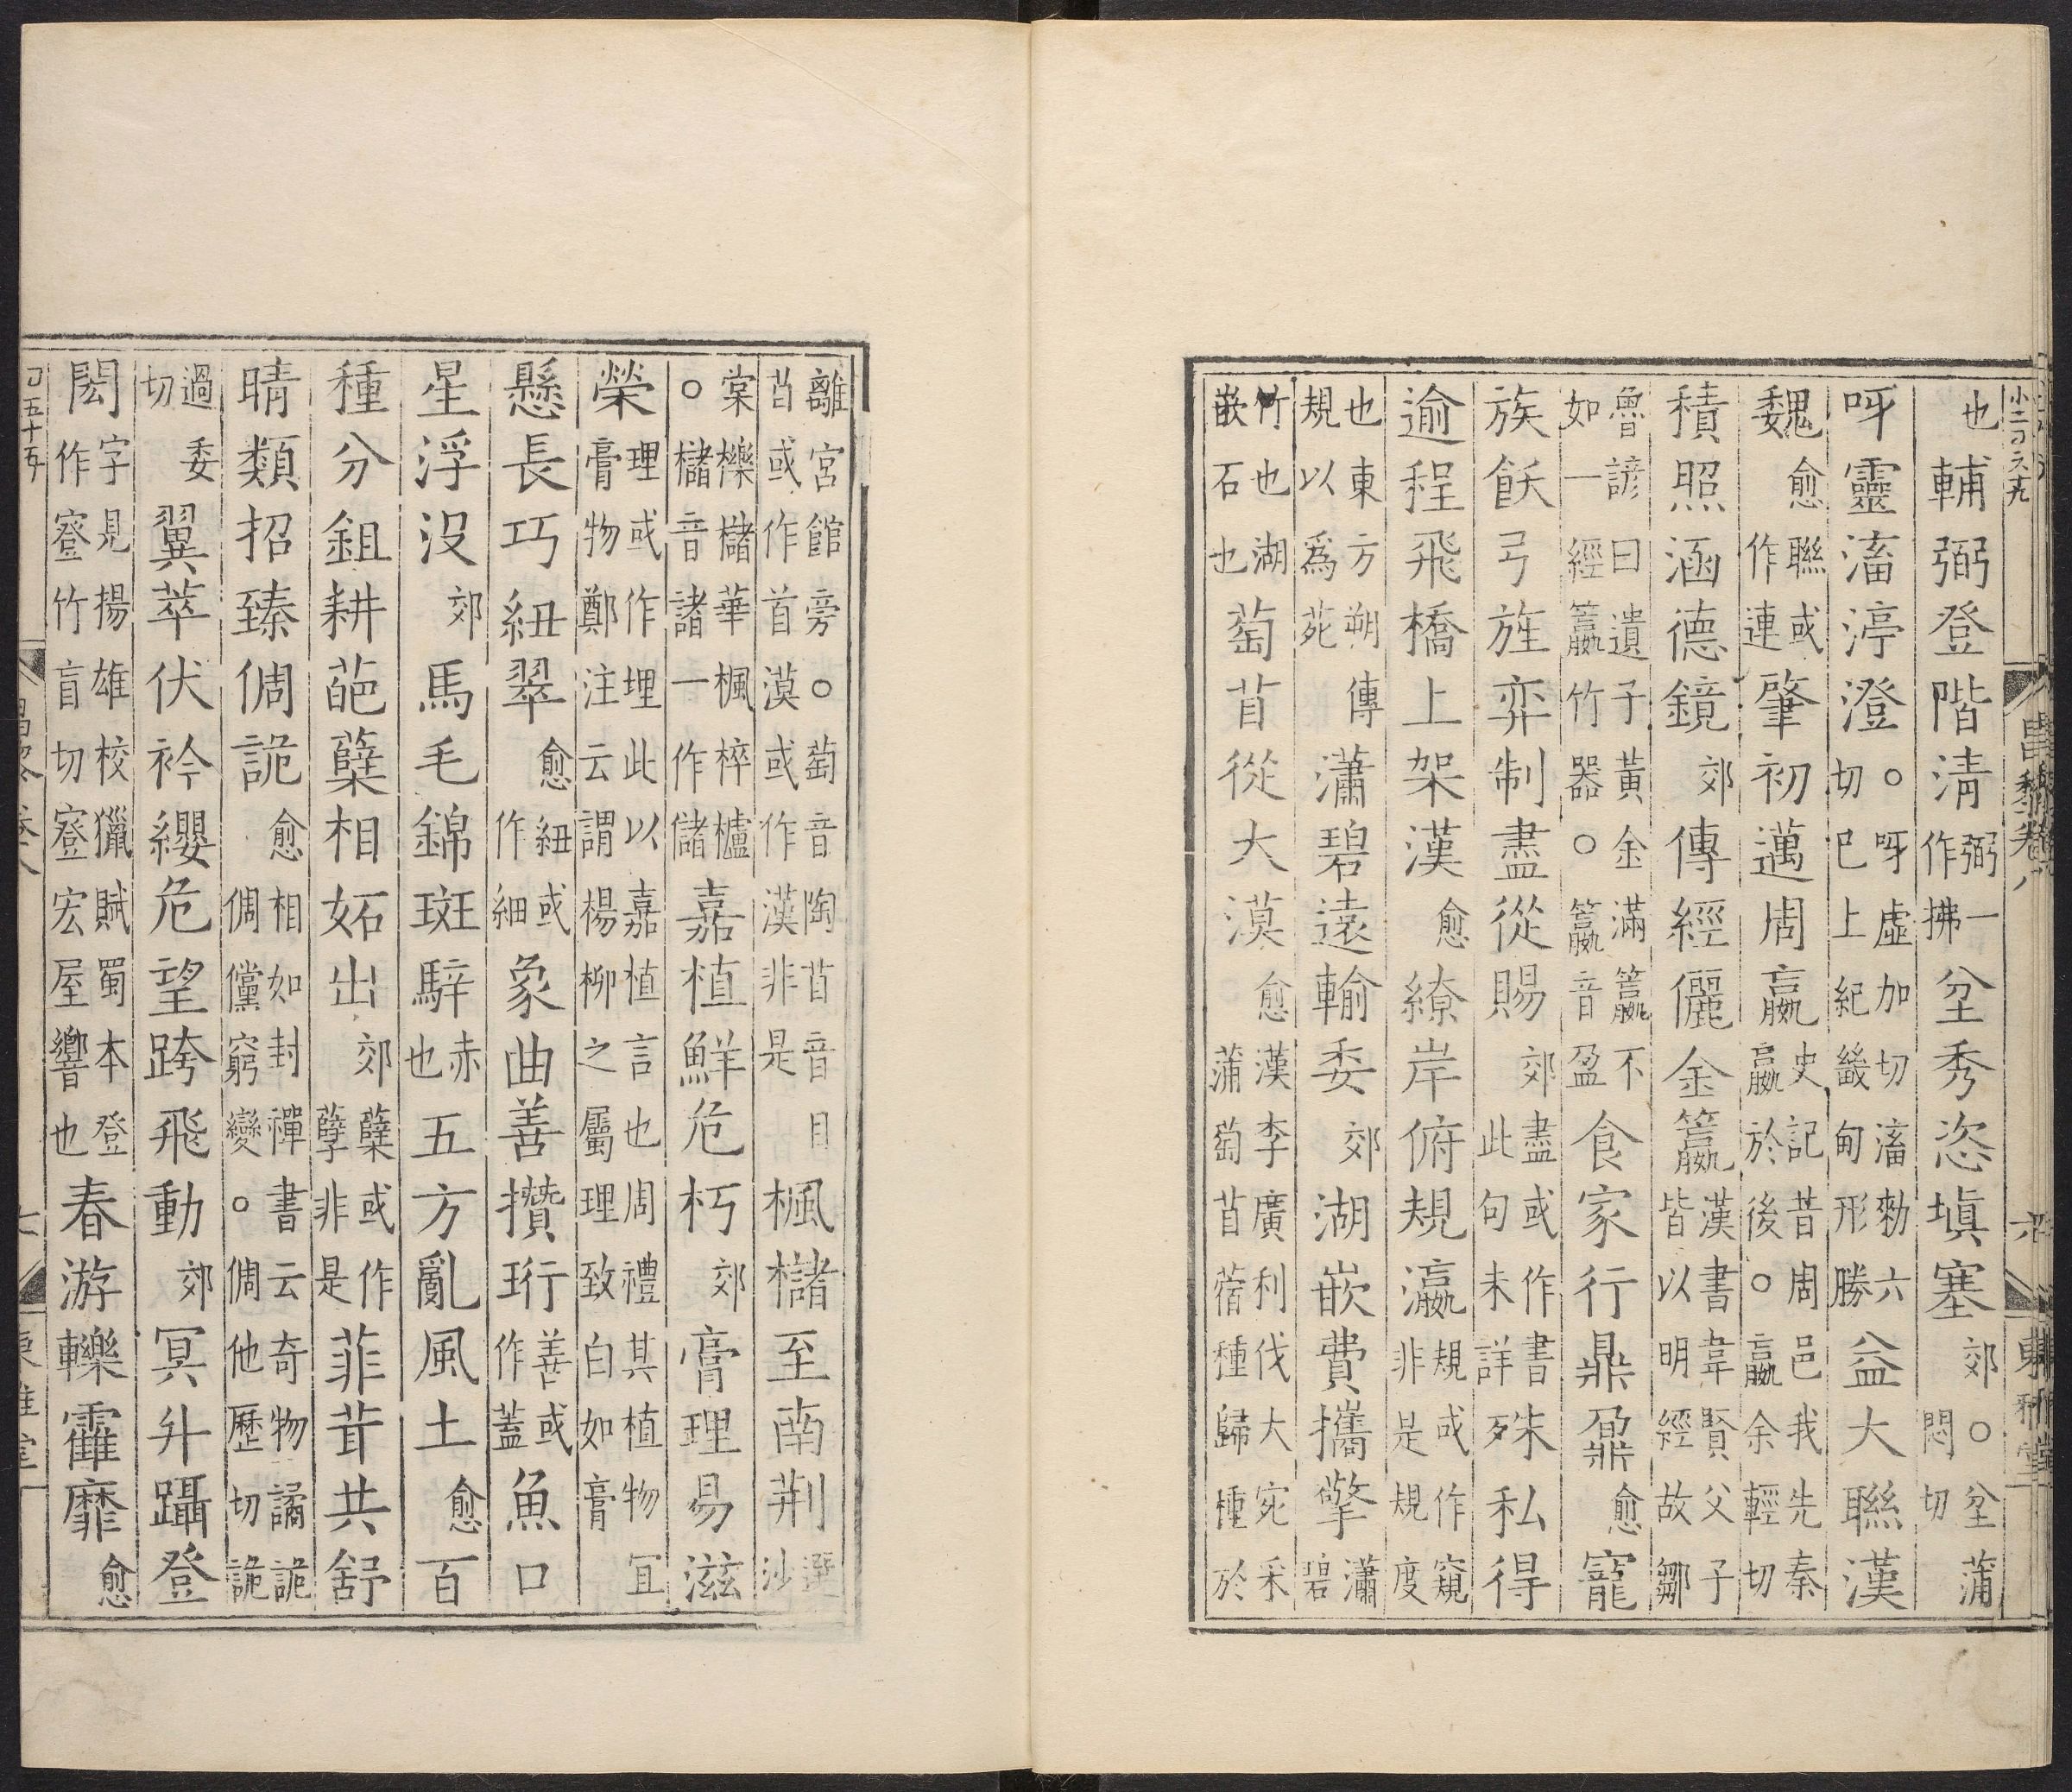 小二百六十九
昌黎卷八 六 東雅堂
也輔弼登階清弼一作拂坌秀恣塡塞郊○坌蒲悶切
呀靈滀渟澄○呀虛加切滀勑六切巳上紀畿甸形勝益大聯漢
魏愈聯或作連肇初邁周嬴史記昔周邑我先秦嬴於後○嬴余輕切
積照涵德鏡郊傳經儷金籯漢書韋賢父子皆以明經故鄒
魯諺曰遺子黃金滿籯不如一經籯竹器○籯音盈食家行鼎鼐愈寵
族飫弓旌弈制盡從賜郊盡或作書此句未詳殊私得
逾程飛橋上架漢愈繚岸俯規瀛規或作窺非是規度
也東方朔傳規以爲苑瀟碧遠輸委郊湖嵌費攜擎瀟碧
竹也湖嵌石也萄苜從大漠愈漢李廣利伐大宛采蒲萄苜蓿種歸種於
離宮館旁○萄音陶苜音目苜或作首漠或作漢非是楓櫧至南荆選沙
棠櫟櫧華楓梓櫨○櫧音諸一作儲嘉植鮮危朽郊膏理易滋
榮理或作埋此以嘉植言也周禮其植物宜膏物鄭注云謂楊柳之屬理致白如膏
懸長巧紐翠愈紐或作細象曲善攢珩善或作蓋魚口
星浮没郊馬毛錦斑騂赤也五方亂風土愈百
種分鉏耕葩蘖相妬出郊蘖或作孽非是菲茸共舒
晴類招臻倜詭愈相如封禪書云奇物譎詭倜儻窮變○倜他歷切詭
過委切翼萃伏衿纓危望跨飛動郊冥升躡登
閎字見揚雄校獵賦蜀本登作窒竹盲切窒宏屋響也春游轢靃靡愈